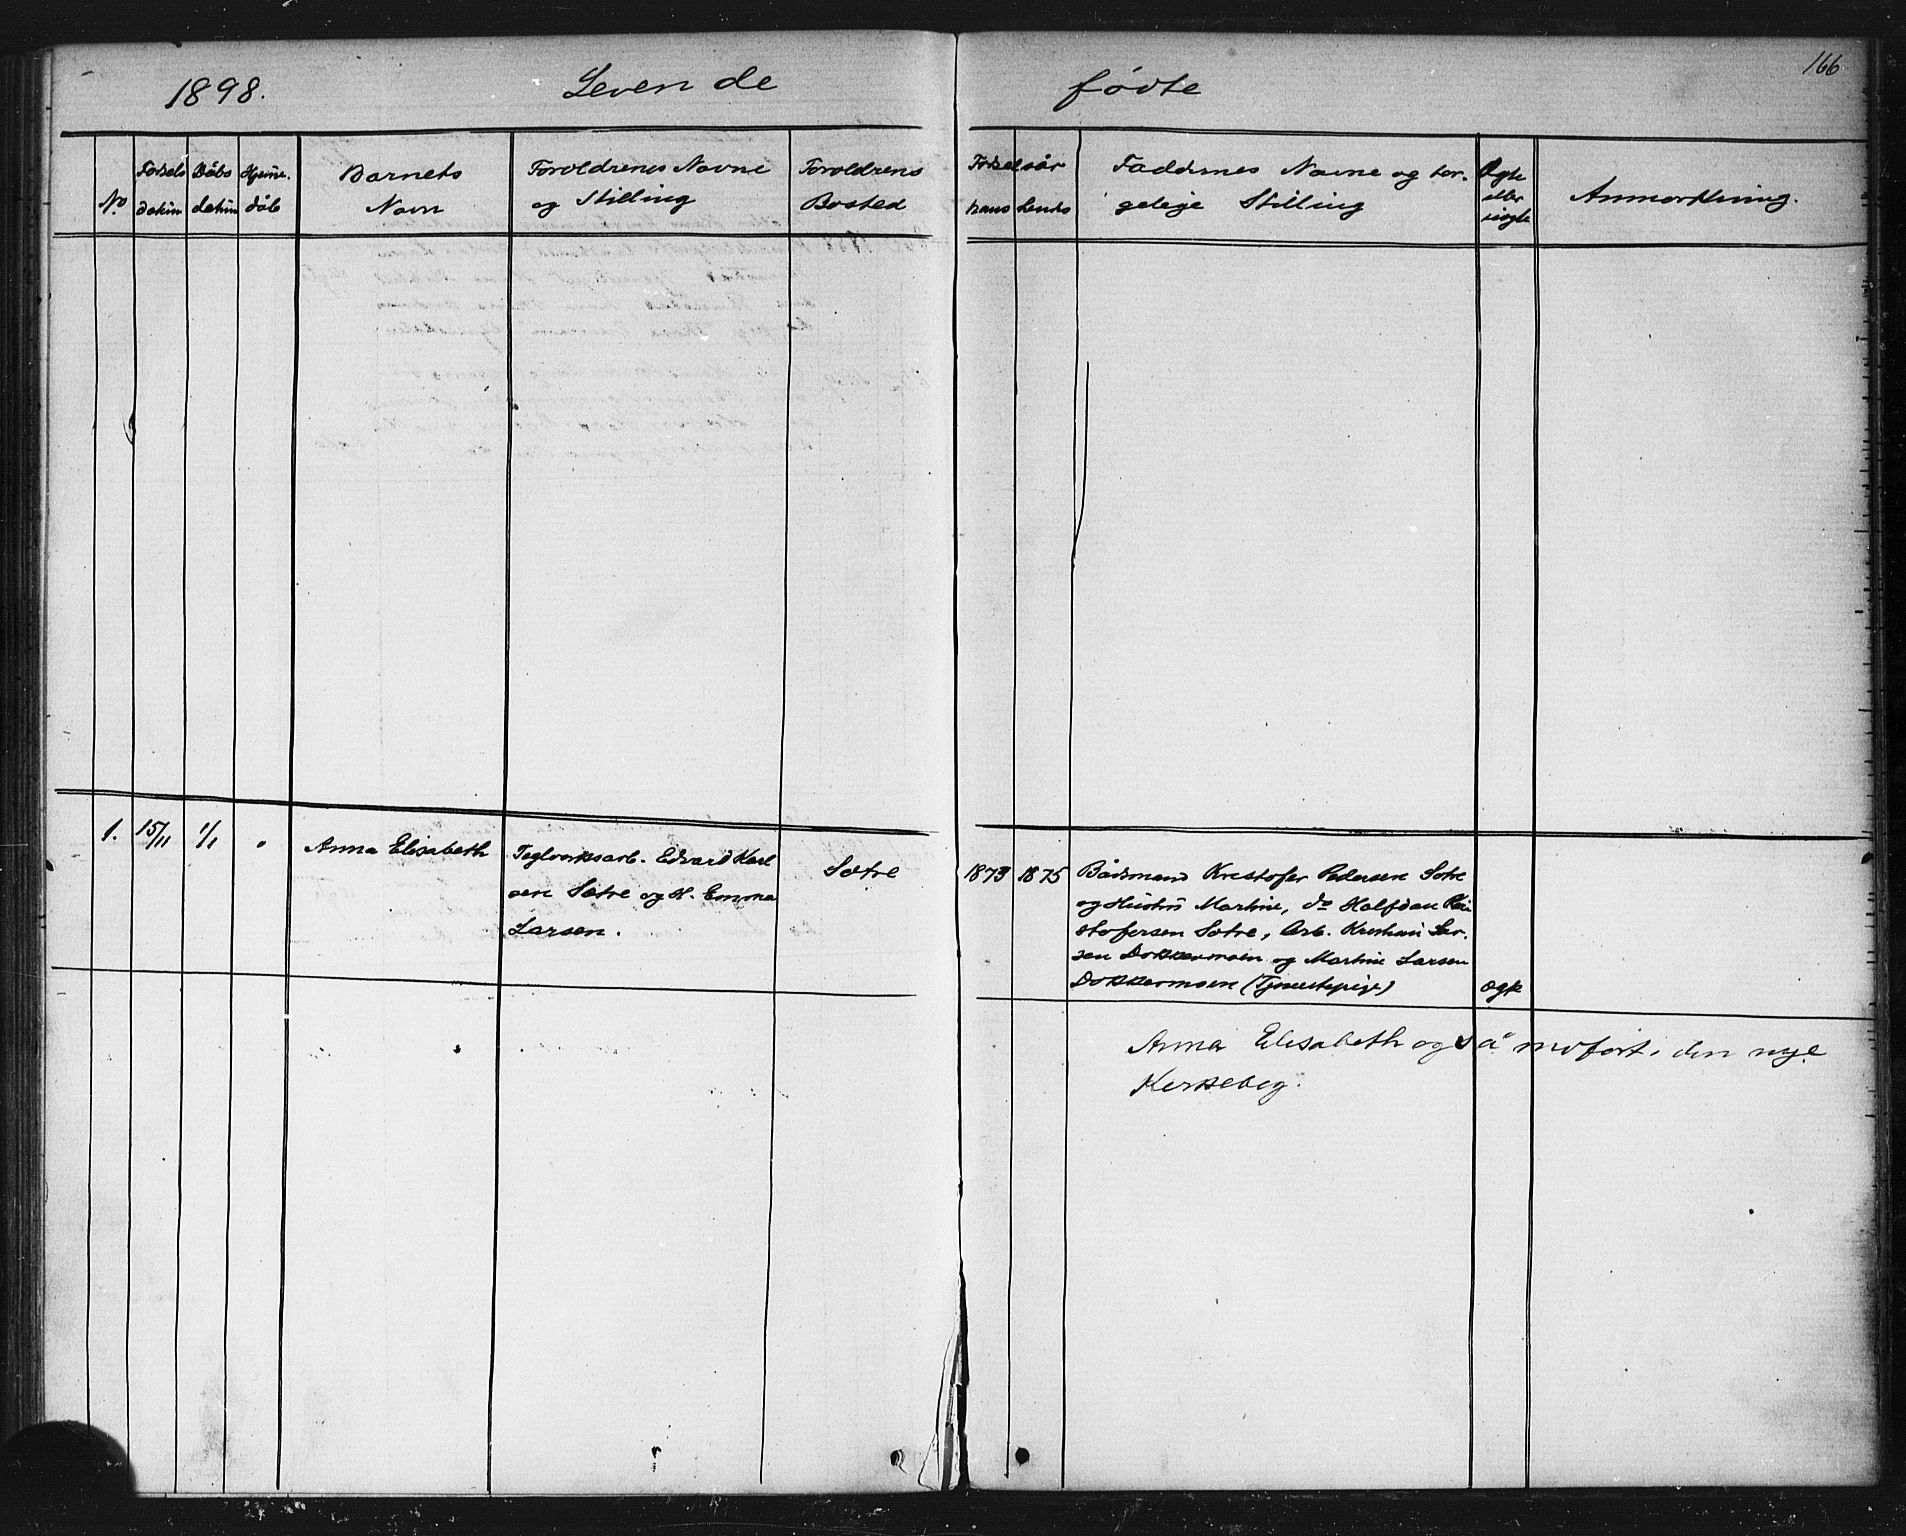 166
1898.
Levende
fødte
No
Fødsels
datum
Dåbs
datum
Hjeme-
dåb
Barnets
Navn
Foroldrenes Navne
og Stilling
Foroldrens
Bosted
Fødselsår
hans
hendes
Faddernes Navne og bor-
gelige Stilling
Ægte
eller
uægte
Anmerkning.
1.
15/11
1/1
"
Anna Elisabeth
Teglverksarb. Edvard Karl
sen Sætre og H. Emma
Larsen.
Sætre
1873
1875
Bådsmand Kristofer Pedersen Sætre
og Hustru Martine, do Halfdan Kri
stofersen Sætre, Arb. Kristian Lar-
sen Dokkermoen og Martine Larsen
Dokkermoen (Tjenestepige)
ægte
Anna Elisabeth også indført i den nye
Kirkebog.